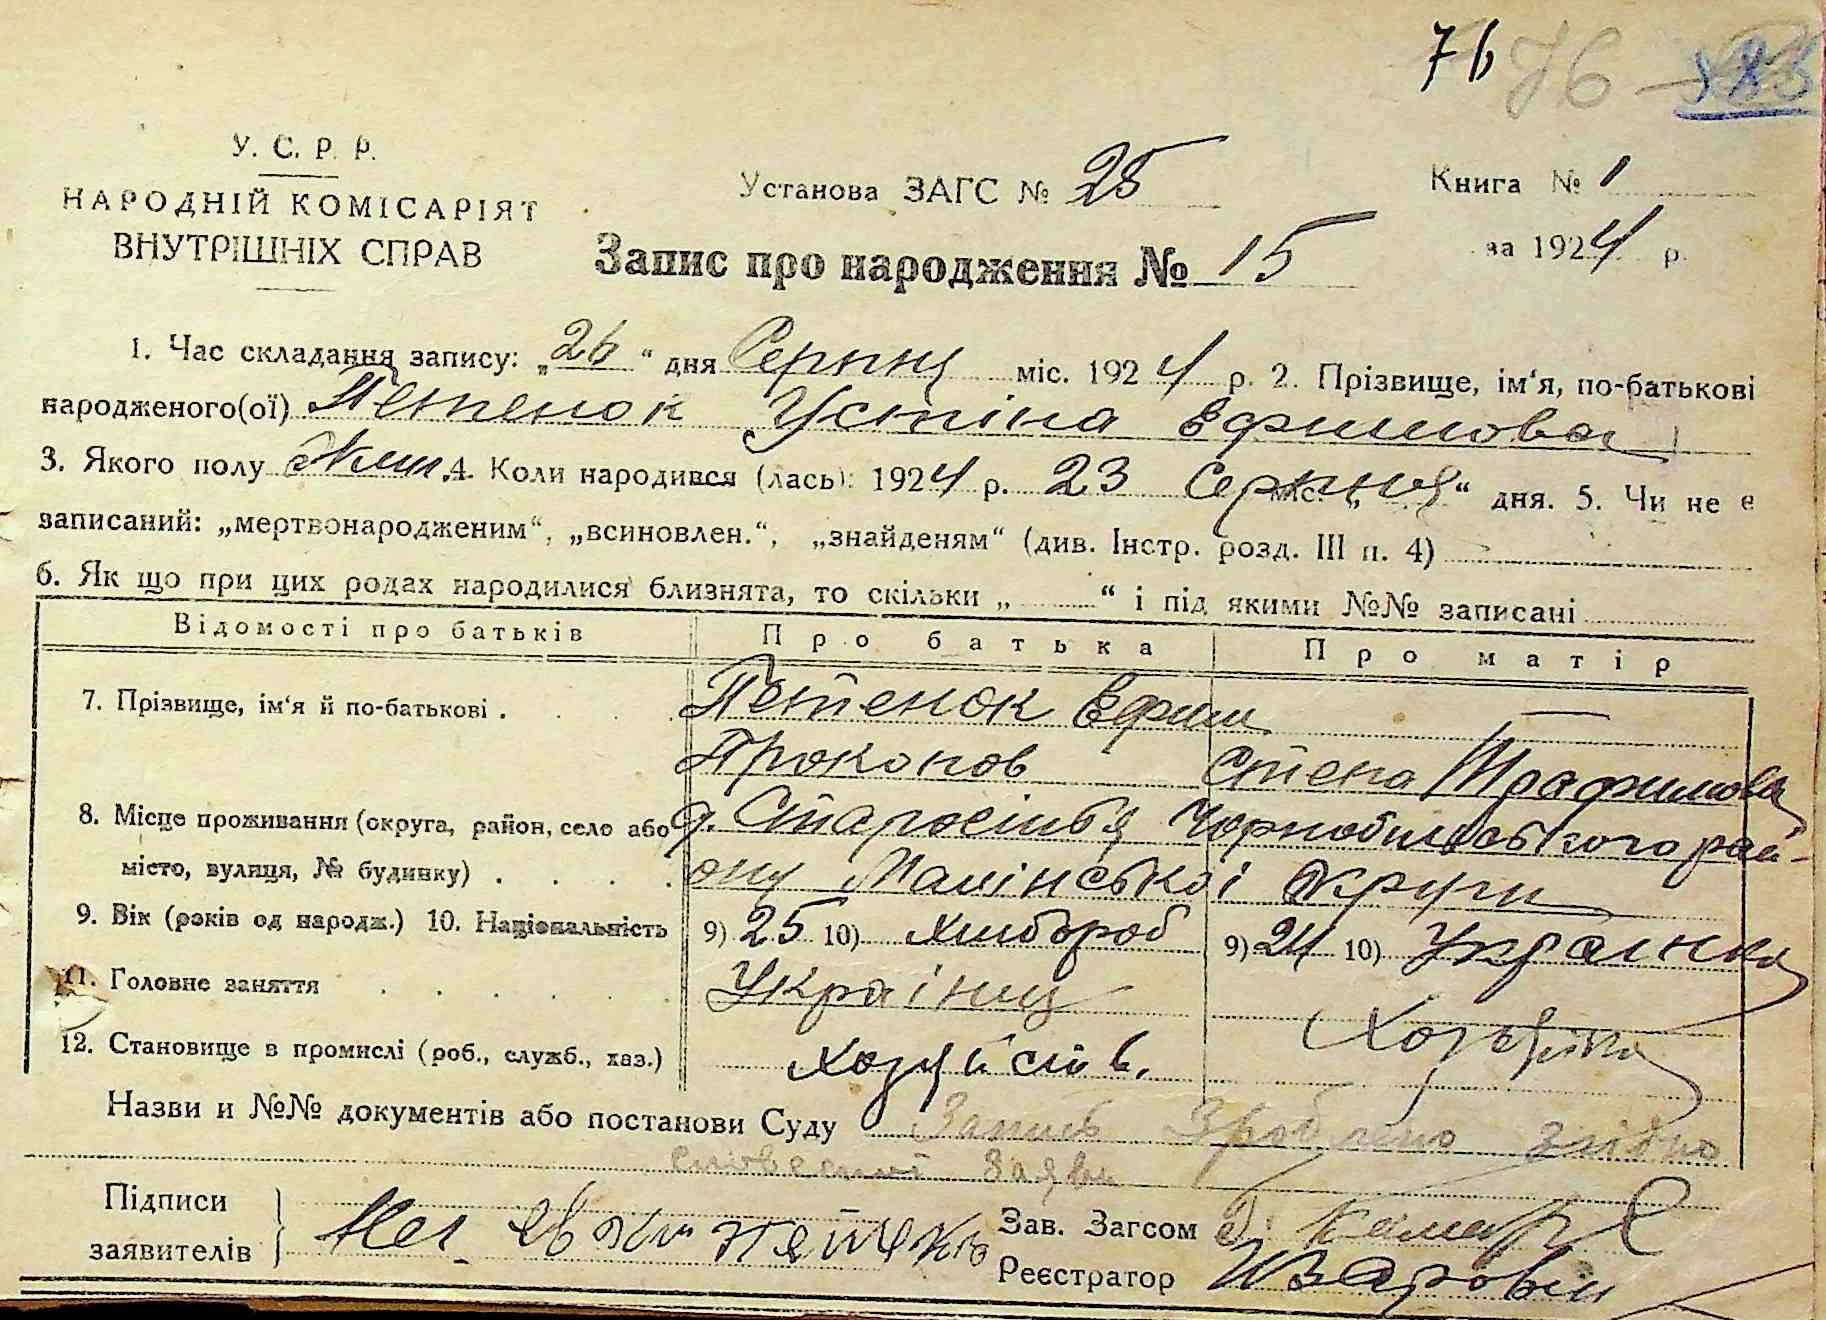 76 76
У. С. Р. Р.
НАРОДНІЙ КОМІСАРІЯТ
ВНУТРІШНІХ СПРАВ
Установа ЗАГС № 25
Книга № 1
за 1924 р.
Запис про народження № 15
1. Час складання запису: „26“ дня Серпня міс. 1924 р. 2. Прізвище, ім‘я, по-батькові
народженого(ої) Петенок Устіна Ефимова
3. Якого полу Жин. 4. Коли народився (лась): 1924 р. 23 Серпня міс. „ “ дня. 5. Чи не є
записаний: „мертвонародженим“, „всиновлен.“, „знайденям“ (див. Інстр. розд. III п. 4)
6. Як що при цих родах народилися близнята, то скільки „ “ і під якими №№ записані
Відомості про батьків Про батька Про матір
7. Прізвище, ім‘я й по-батькові . Петенок Ефим —
Прокопов Степа Трафимова
8. Місце проживання (округа, район, село або д. Старосілья Чорнобильського рай-
місто, вулиця, № будинку) . ону Малінської Округи
9. Вік (років од народж.) 10. Національність 9) 25 10) Хлибороб 9) 24 10) Украінка
11. Головне заняття Украінец Хозяйка
12. Становище в промислі (роб., служб., хаз.) Хозяйств.
Назви и №№ документів або постанови Суду Запись Зроблено згідно
словесної Заяви
Підписи
заявителів
Зав. Загсом
Реєстратор